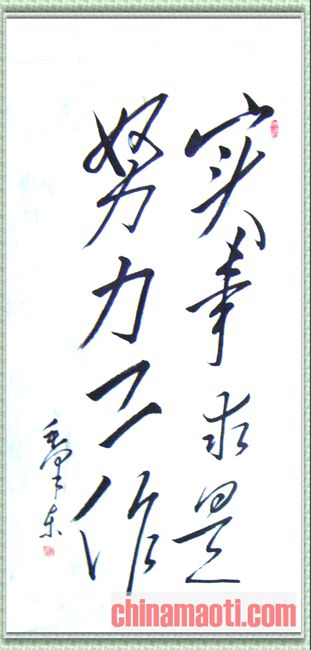 实事求是
努力工作
毛泽东
chinamaoti.com